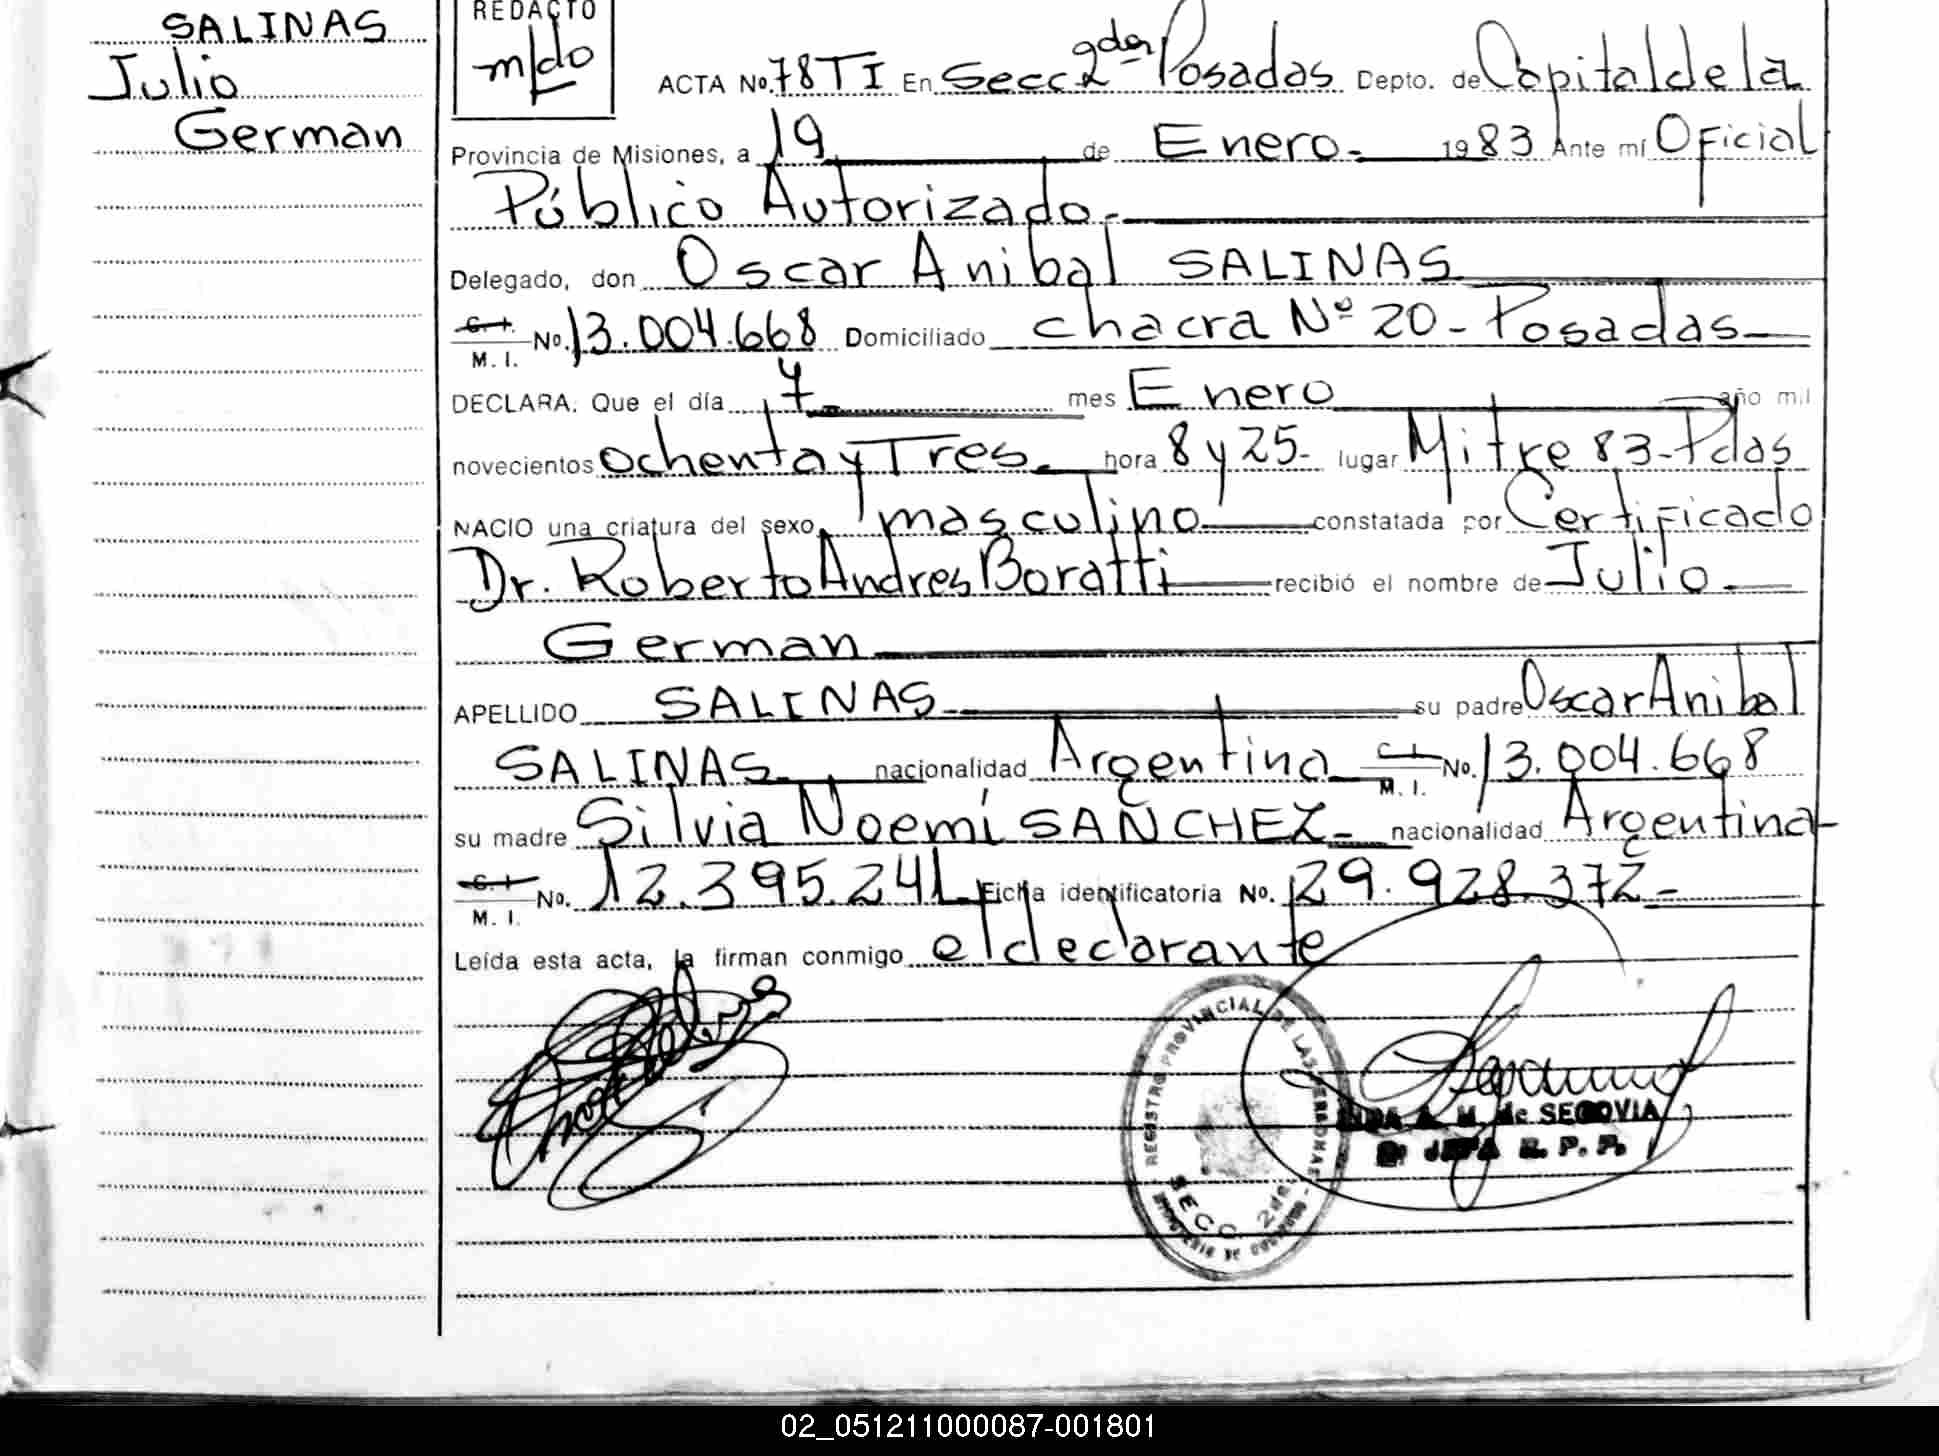 SALINAS
Julio
German
REDACTO
mldo
ACTA No. 78 TI En Secc 2da Posadas Depto. de Capital de la
Provincia de Misiones, a 19 de Enero. 1983 Ante mí Oficial
Público Autorizado.
Delegado, don Oscar Anibal SALINAS
C. I. M. I. No. 13.004.668 Domiciliado chacra Nº 20 - Posadas
DECLARA: Que el día 7 mes Enero año mil
novecientos ochenta y Tres. hora 8 y 25- lugar Mitre 83-Pdas
NACIO una criatura del sexo masculino constatada por Certificado
Dr. Roberto Andres Boratti recibió el nombre de Julio
German
APELLIDO SALINAS su padre Oscar Anibal
SALINAS nacionalidad Argentina C. I. M. I. No. 13.004.668
su madre Silvia Noemí SANCHEZ nacionalidad Argentina
C. I. M. I. No. 12.395.241 Ficha identificatoria No. 29.928.372
Leída esta acta, la firman conmigo el declarante
REGISTRO PROVINCIAL DE LAS PERSONAS
SECC 2da
A. M. de SEGOVIA
JEFA R. P. P.
02_051211000087-001801